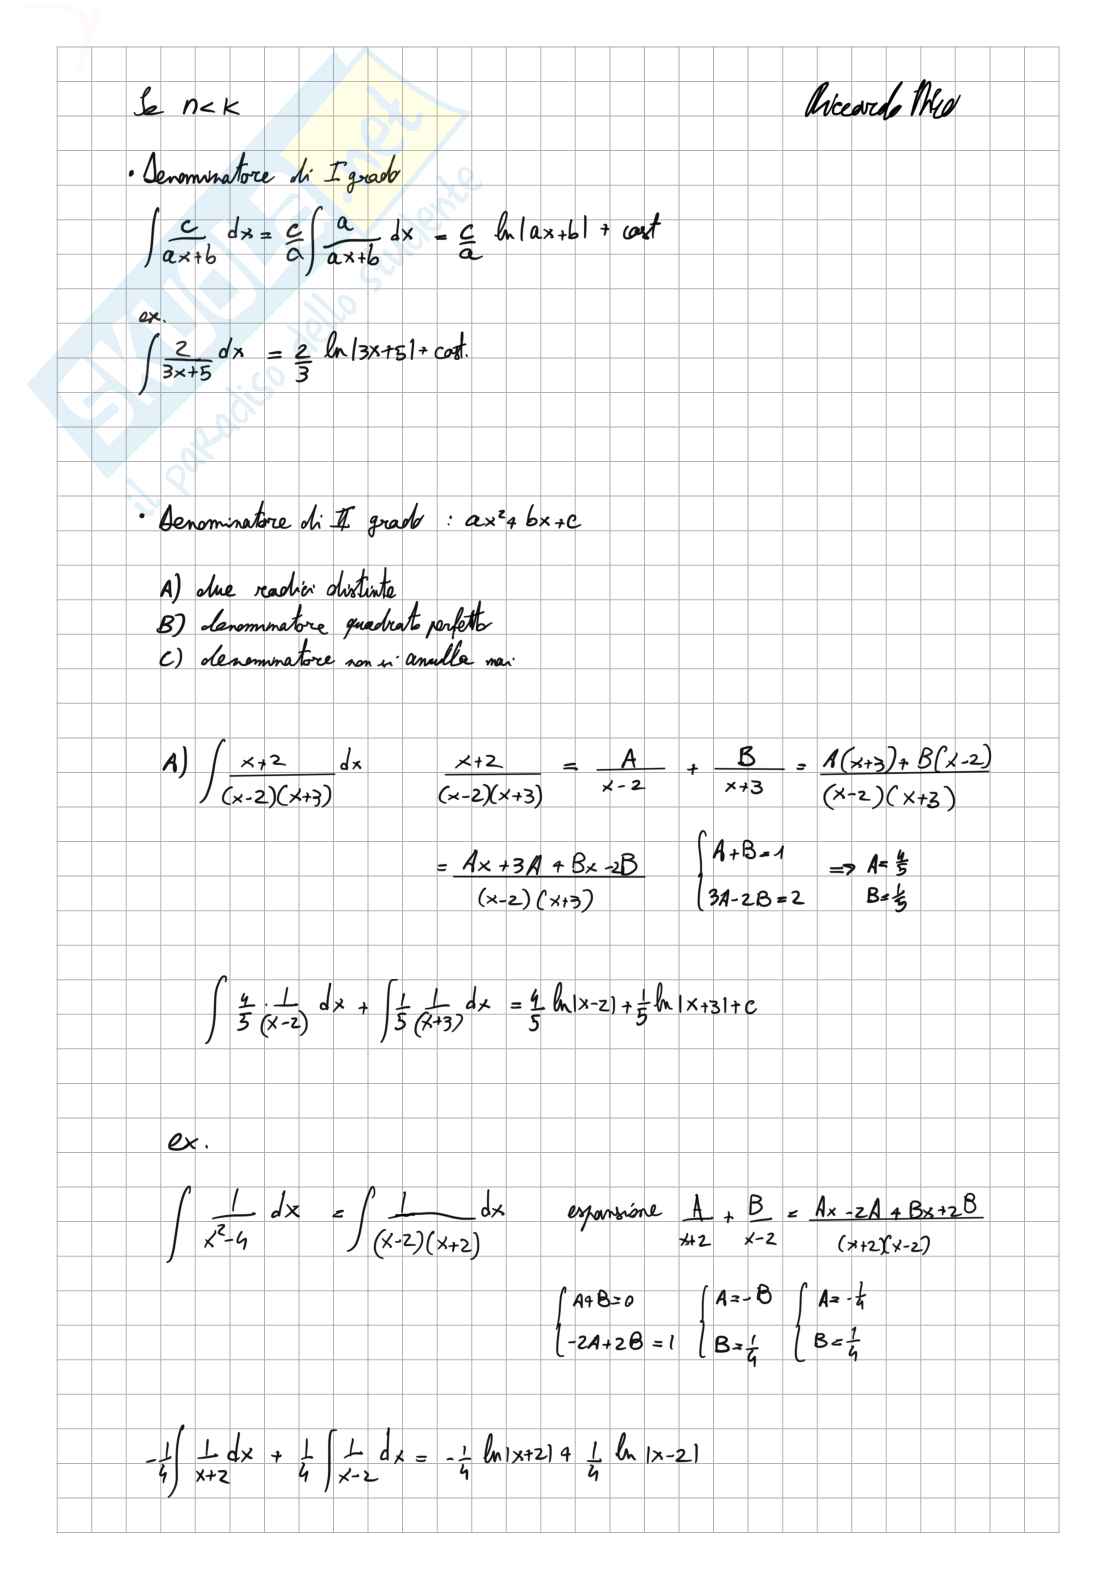 Se n<k
Riccardo
• Denominatore di I grado
∫ c/(ax+b) dx = c/a ∫ a/(ax+b) dx = c/a ln|ax+b| + cost
ex.
∫ 2/(3x+5) dx = 2/3 ln|3x+5| + cost.
• Denominatore di II grado : ax²+bx+c
A) due radici distinte
B) denominatore quadrato perfetto
C) denominatore non si annulla mai
A) ∫ (x+2)/((x-2)(x+3)) dx (x+2)/((x-2)(x+3)) = A/(x-2) + B/(x+3) = (A(x+3)+B(x-2))/((x-2)(x+3))
= (Ax+3A+Bx-2B)/((x-2)(x+3)) { A+B=1 ; 3A-2B=2 => A=4/5 B=1/5
∫ 4/5 · 1/(x-2) dx + ∫ 1/5 1/(x+3) dx = 4/5 ln|x-2| + 1/5 ln|x+3| + c
ex.
∫ 1/(x²-4) dx = ∫ 1/((x-2)(x+2)) dx espansione A/(x+2) + B/(x-2) = (Ax-2A+Bx+2B)/((x+2)(x-2))
{ A+B=0 ; -2A+2B=1 { A=-B ; B=1/4 { A=-1/4 ; B=1/4
-1/4 ∫ 1/(x+2) dx + 1/4 ∫ 1/(x-2) dx = -1/4 ln|x+2| + 1/4 ln|x-2|
SKUOLA.net
il paradiso dello studente